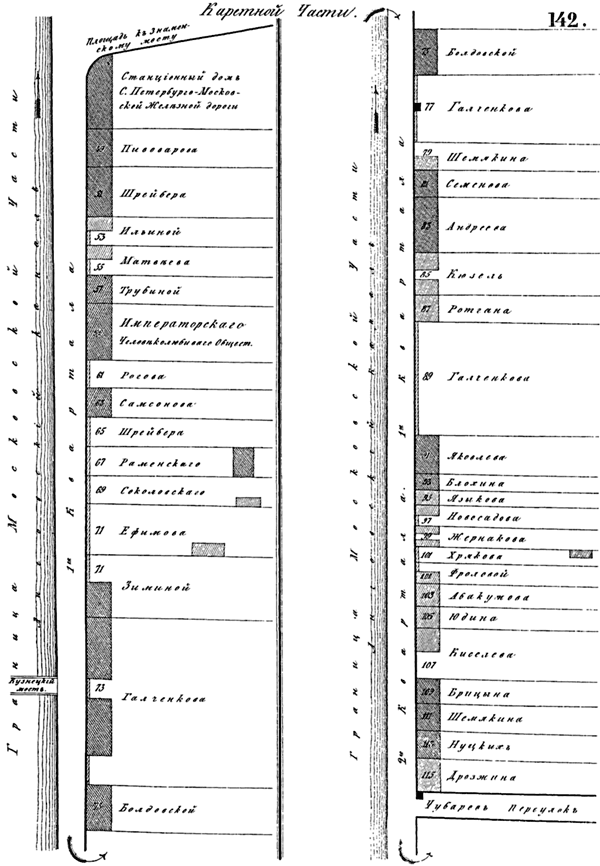 Каретной Части.
142.
Площадь къ Знамен-
скому мосту
Станціонный домъ
С. Петербурго-Москов-
ской Железной дороги
Пивоварова
Шрейбера
Ильиной
53
Матвеева
55
Трубиной
57
Императорскаго
Человѣколюбиваго Общест.
61
Росова
63
Самсонова
65
Шрейбера
67
Раменскаго
69
Соколовскаго
71
Ефимова
71
Зиминой
73
Галченкова
Болдовской
Кузнецкій
мостъ.
Граница Московской Части
Лиговскій каналъ
1й Квартала
75
Болдовской
77
Галченкова
79
Шемякина
81
Семенова
83
Андреева
85
Кюзель
87
Ротгана
89
Галченкова
91
Яковлева
93
Блохина
95
Языкова
97
Новосадова
99
Жернакова
101
Хрякова
Фроловой
103
Абакумова
105
Юдина
Киселева
107
109
Брицына
111
Шемякина
113
Нуцкихъ
115
Дрозжина
Чубаровъ Переулокъ
Граница Московской Части
Лиговскій каналъ
1й Квартала
2й Квартала.